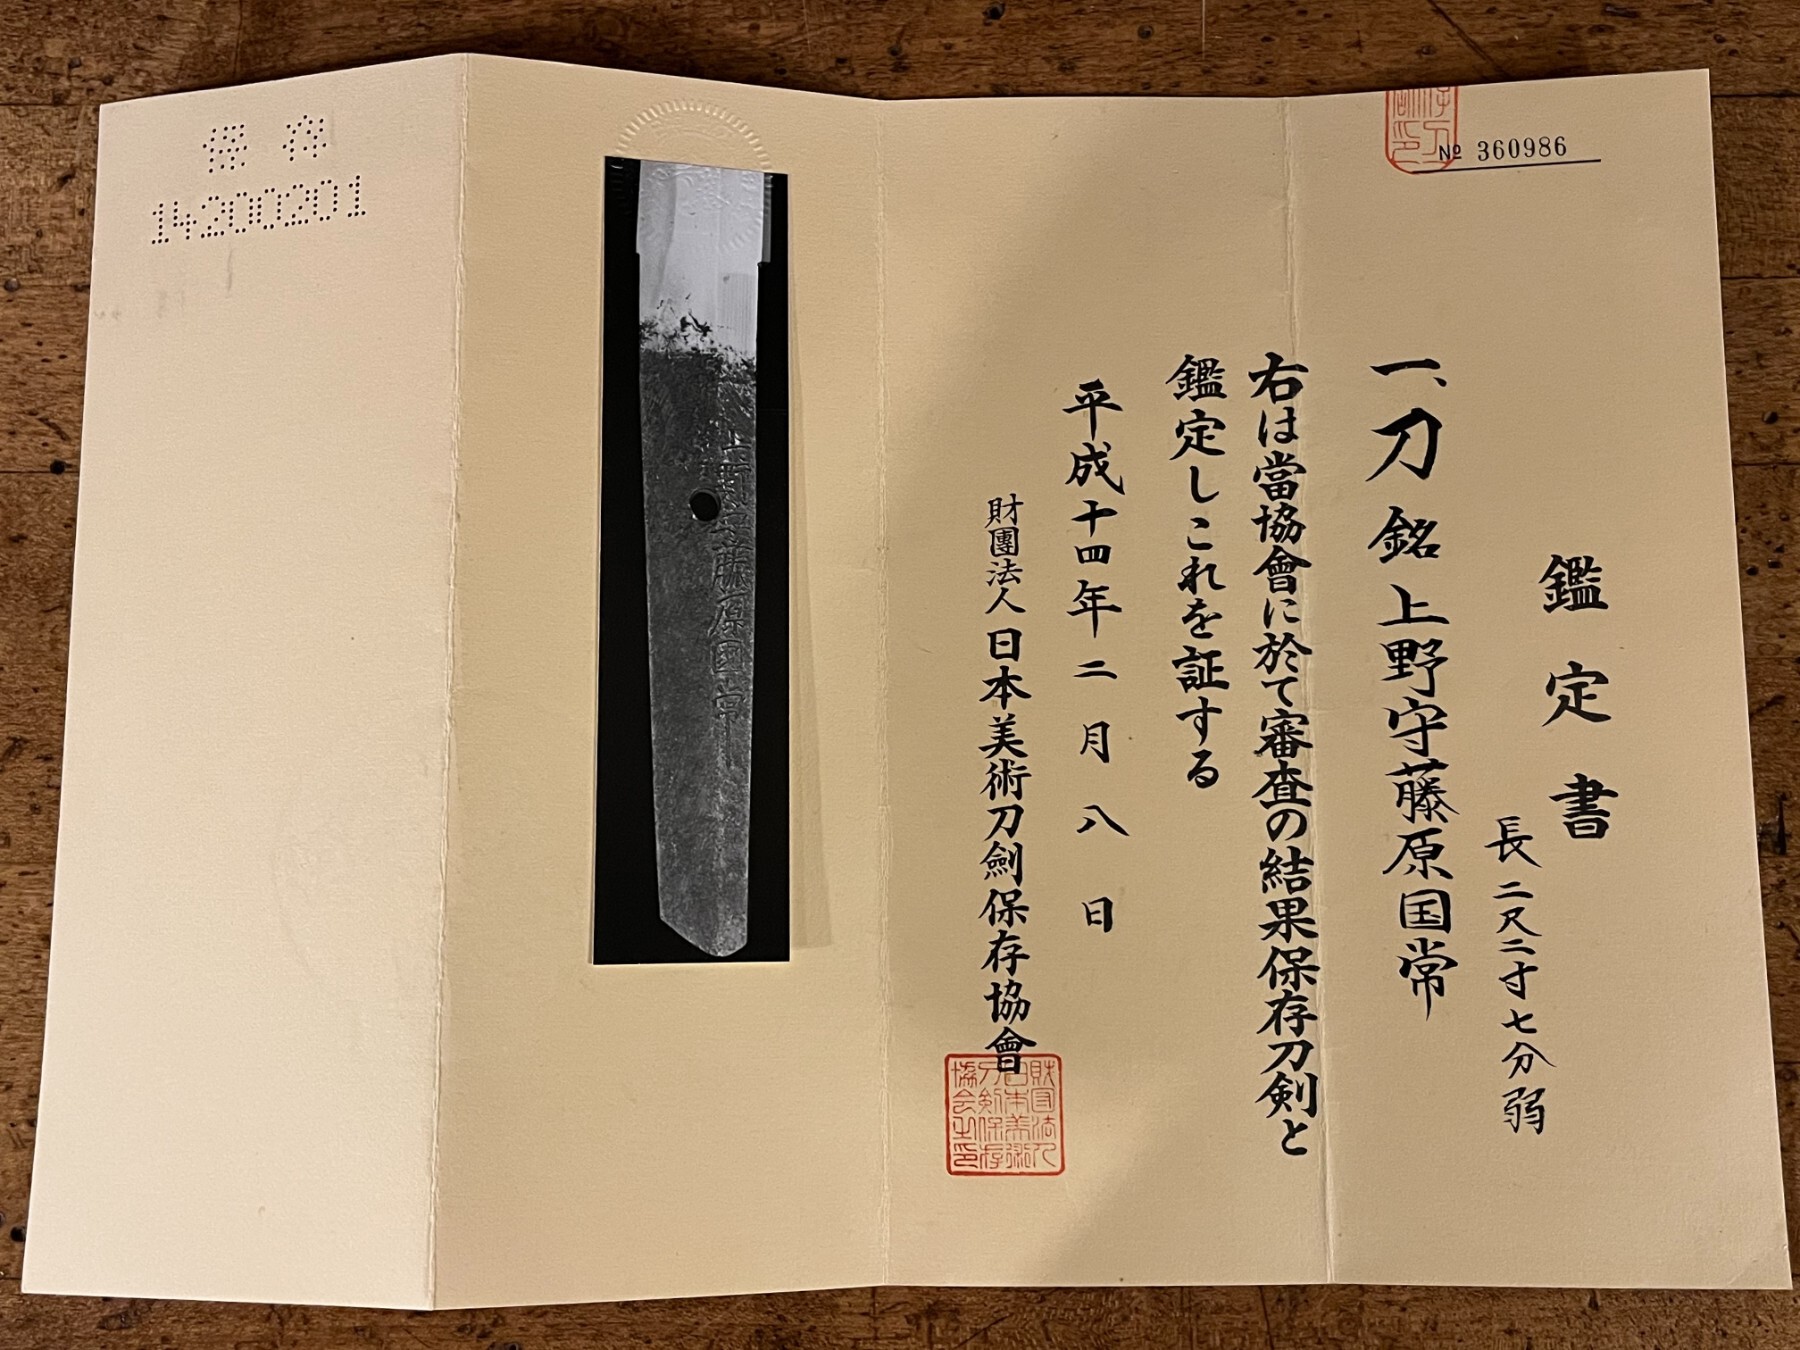 № 360986
鑑定書
一、刀 銘 上野守藤原国常
長二尺二寸七分弱
右は當協會に於て審査の結果保存刀剣と
鑑定しこれを証する
平成十四年二月八日
財團法人日本美術刀劍保存協會
財団法人
日本美術
刀剣保存
協会之印
上野守藤原国常
保存
14200201